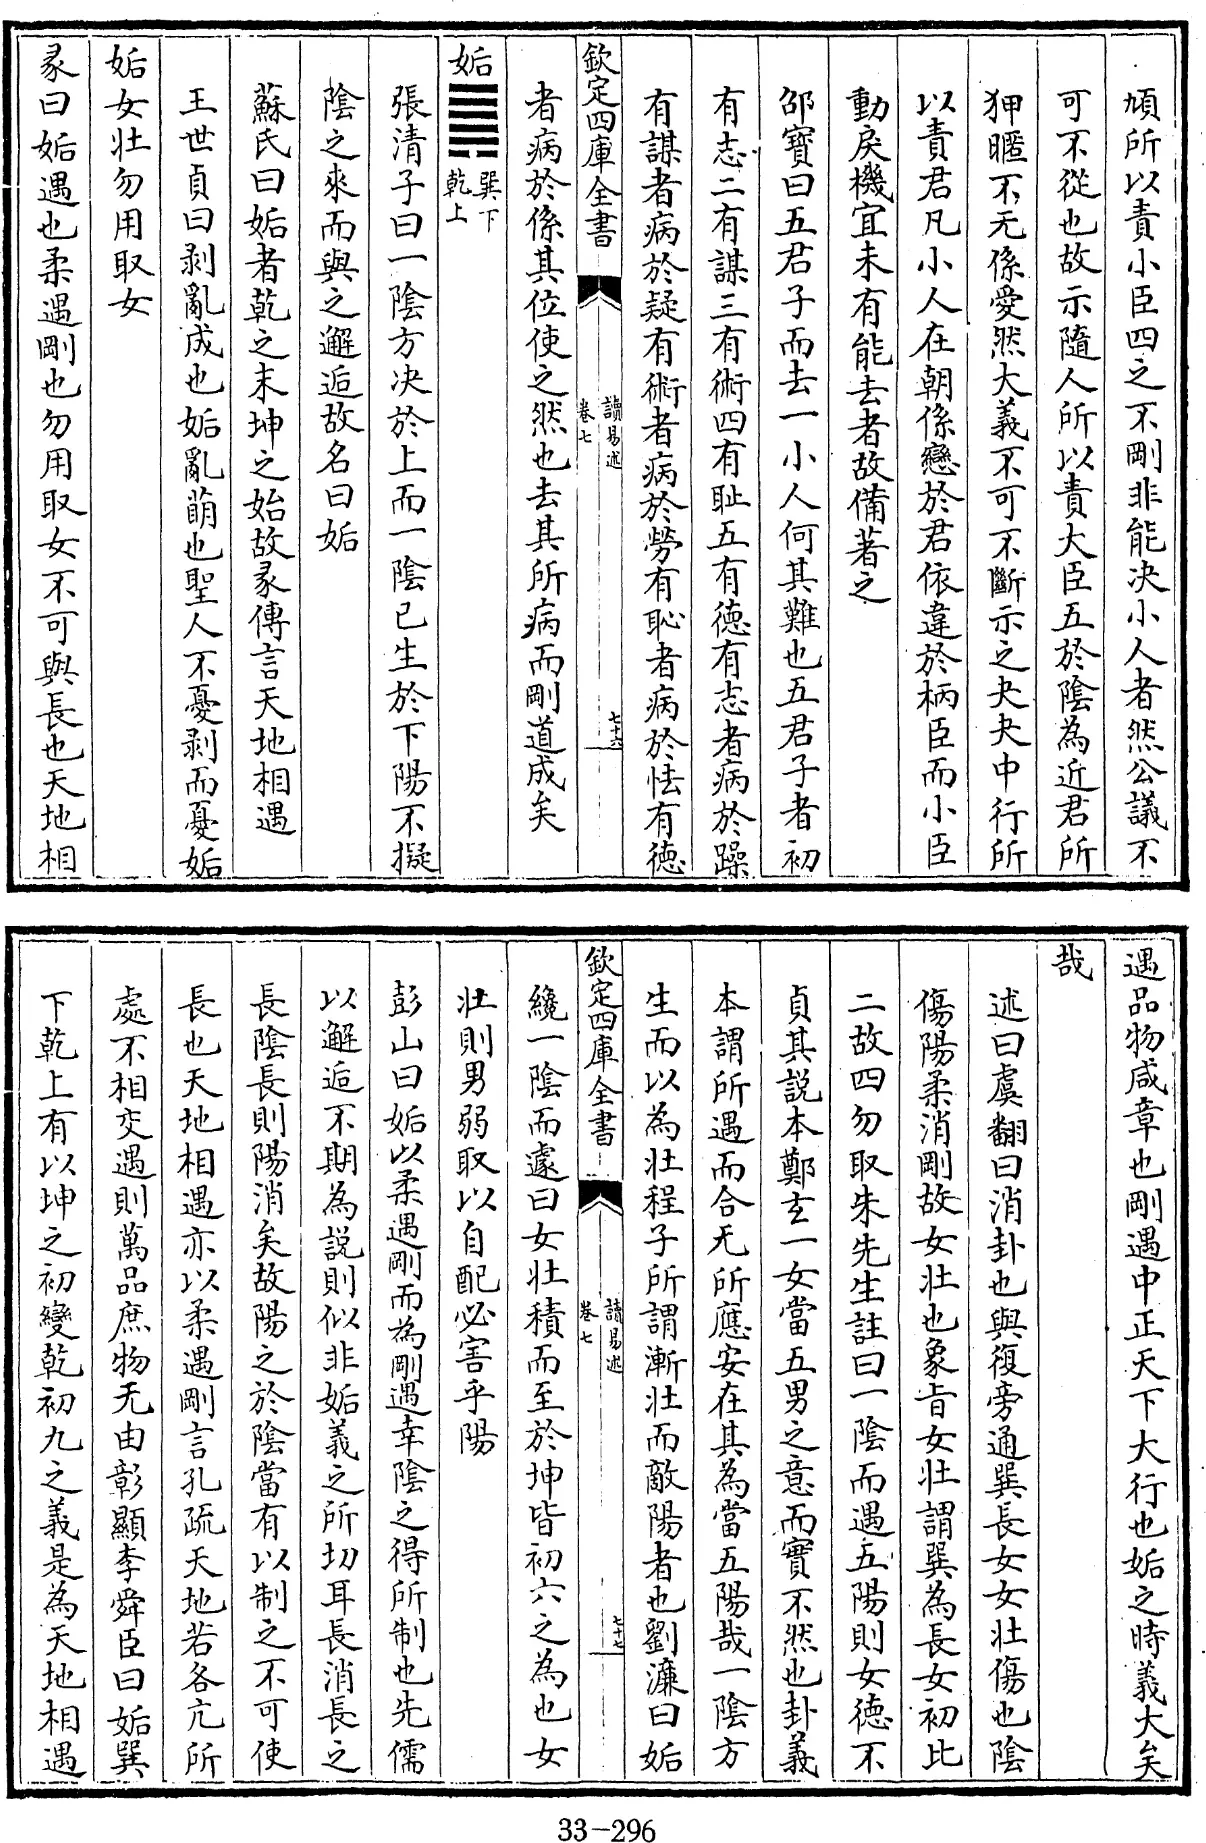 頄所以責小臣四之不剛非能决小人者然公議不
可不從也故示隨人所以責大臣五於陰為近君所
狎暱不无係愛然大義不可不斷示之夬夬中行所
以責君凡小人在朝係戀於君依違於柄臣而小臣
動戾機宜未有能去者故備著之
邵寳曰五君子而去一小人何其難也五君子者初
有志二有謀三有術四有耻五有德有志者病於躁
有謀者病於疑有術者病於勞有恥者病於怯有德
欽定四庫全書
讀易述
卷七
七十六
者病於係其位使之然也去其所病而剛道成矣
姤䷫巽下
乾上
張清子曰一陰方决於上而一陰已生於下陽不擬
陰之來而與之邂逅故名曰姤
蘇氏曰姤者乾之末坤之始故彖傳言天地相遇
王世貞曰剥亂成也姤亂萌也聖人不憂剥而憂姤
姤女壯勿用取女
彖曰姤遇也柔遇剛也勿用取女不可與長也天地相
遇品物咸章也剛遇中正天下大行也姤之時義大矣
哉
述曰虞翻曰消卦也與復旁通巽長女女壯傷也陰
傷陽柔消剛故女壯也象旨女壯謂巽為長女初比
二故四勿取朱先生註曰一陰而遇五陽則女德不
貞其説本鄭玄一女當五男之意而實不然也卦義
本謂所遇而合无所應安在其為當五陽哉一陰方
生而以為壯程子所謂漸壯而敵陽者也劉濂曰姤
欽定四庫全書
讀易述
卷七
七十七
纔一陰而遽曰女壯積而至於坤皆初六之為也女
壯則男弱取以自配必害乎陽
彭山曰姤以柔遇剛而為剛遇幸陰之得所制也先儒
以邂逅不期為説則似非姤義之所切耳長消長之
長陰長則陽消矣故陽之於陰當有以制之不可使
長也天地相遇亦以柔遇剛言孔疏天地若各亢所
處不相交遇則萬品庶物无由彰顯李舜臣曰姤巽
下乾上有以坤之初變乾初九之義是為天地相遇
33-296